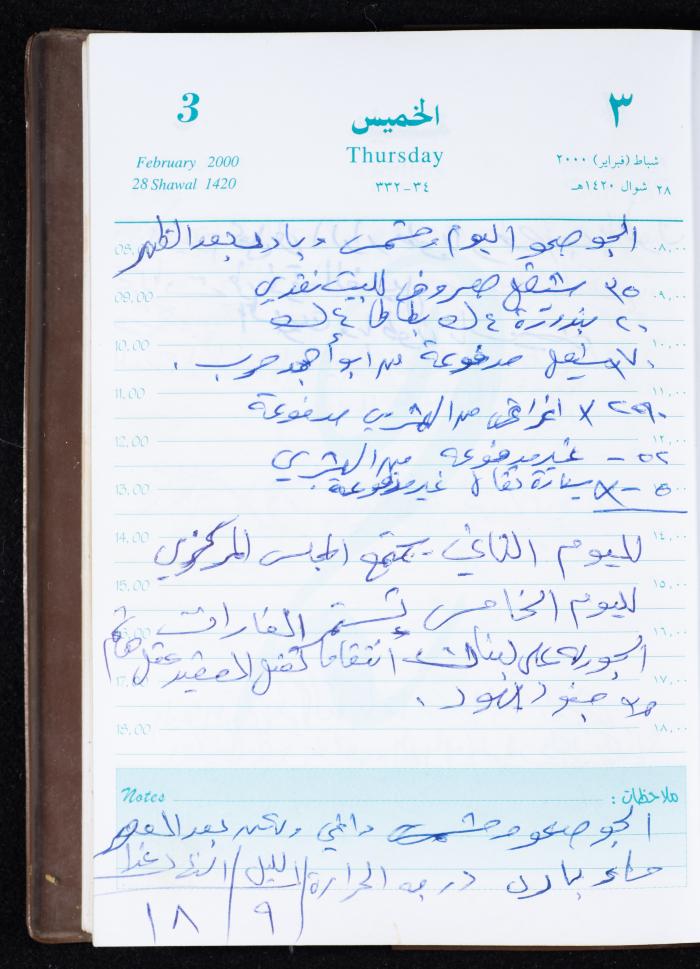 3 الخميس ٣
February 2000 Thursday شباط (فبراير) ٢٠٠٠
28 Shawal 1420 ٣٣٢-٣٤ ٢٨ شوال ١٤٢٠هـ
الجو صحو اليوم ومشمس وبارد بعد الظهر
08.00 ٨,٠٠
٣٥ شيقل مصروف للبيت نقدي
09.00 ٩,٠٠
٢٠ بندورة ٤ ك بطاطا ٤ ك
10.00 ١٠,٠٠
٧٠ شيقل مدفوعة من ابو أحمد حرب .
11.00 ١١,٠٠
٢٩٠ X اغراض من المشري مدفوعة
12.00 ١٢,٠٠
٥٢ - غير مدفوعة من المشري
٥ - X سيارة نقال غير مدفوعة
13.00 ١٣,٠٠
لليوم الثاني يجتمع المجلس المركزي
14.00 ١٤,٠٠
15.00 ١٥,٠٠
لليوم الخامس تستمر الغارات
16.00 ١٦,٠٠
الجوية على لبنان انتقاما لقتل العقيد عقل هاشم
17.00 ١٧,٠٠
جنود اليهود .
18.00 ١٨,٠٠
Notes ملاحظات :
الجو صحو ومشمس دافي ولكن بعد العصر
مساء بارد درجة الحرارة الليل النهار غدا
٩ ١٨